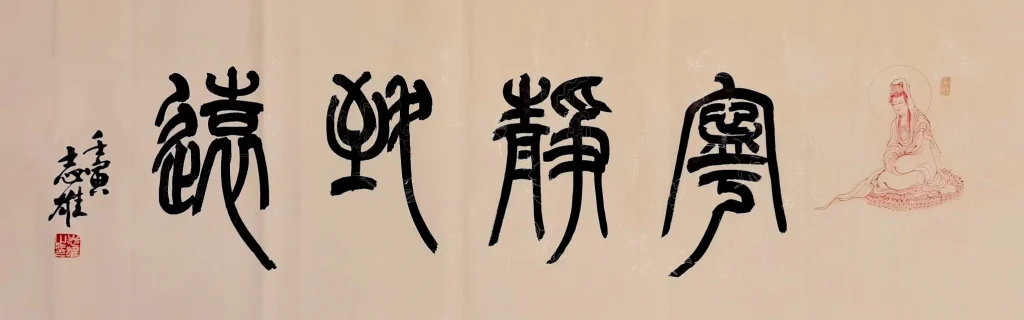 寧靜致遠
壬寅
志雄